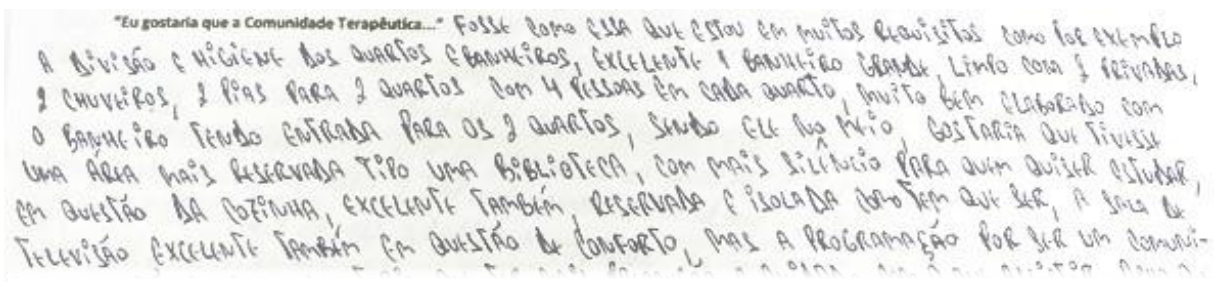 "Eu gostaria que a Comunidade Terapêutica..." FOSSE COMO ESSA QUE ESTOU EM MUITOS REQUISITOS COMO POR EXEMPLO
A DIVISÃO E HIGIENE DOS QUARTOS E BANHEIROS, EXCELENTE 1 BANHEIRO GRANDE, LIMPO COM 2 PRIVADAS,
2 CHUVEIROS, 2 PIAS PARA 2 QUARTOS COM 4 PESSOAS EM CADA QUARTO, MUITO BEM ELABORADO COM
O BANHEIRO TENDO ENTRADA PARA OS 2 QUARTOS, SENDO ELE NO MEIO, GOSTARIA QUE TIVESSE
UMA ÁREA MAIS RESERVADA TIPO UMA BIBLIOTECA, COM MAIS SILÊNCIO PARA QUEM QUISER ESTUDAR,
EM QUESTÃO DA COZINHA, EXCELENTE TAMBÉM, RESERVADA E ISOLADA COMO TEM QUE SER, A SALA DE
TELEVISÃO EXCELENTE TAMBÉM EM QUESTÃO DE CONFORTO, MAS A PROGRAMAÇÃO POR SER UM COMUNI-